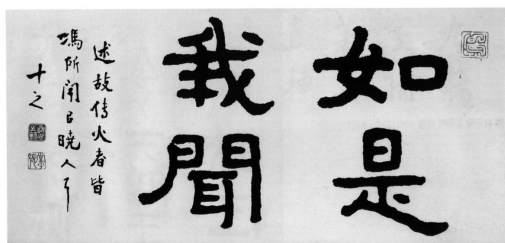 如是
我聞
述故傳火者皆
馮所聞已曉人耳
十之